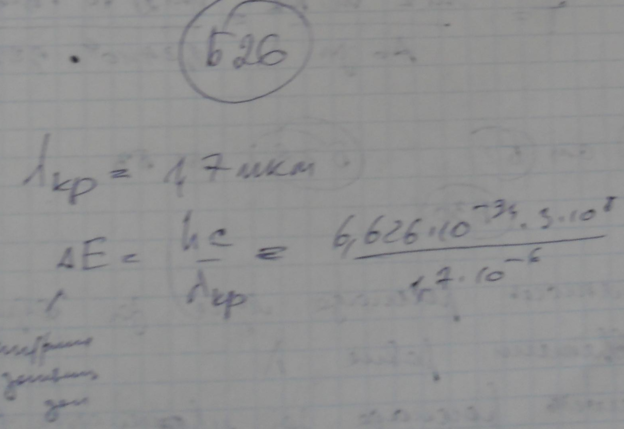 526
λкр = 1,7 мкм
ΔE = hc/λкр = 6,626·10⁻³⁴·3·10⁸/1,7·10⁻⁶